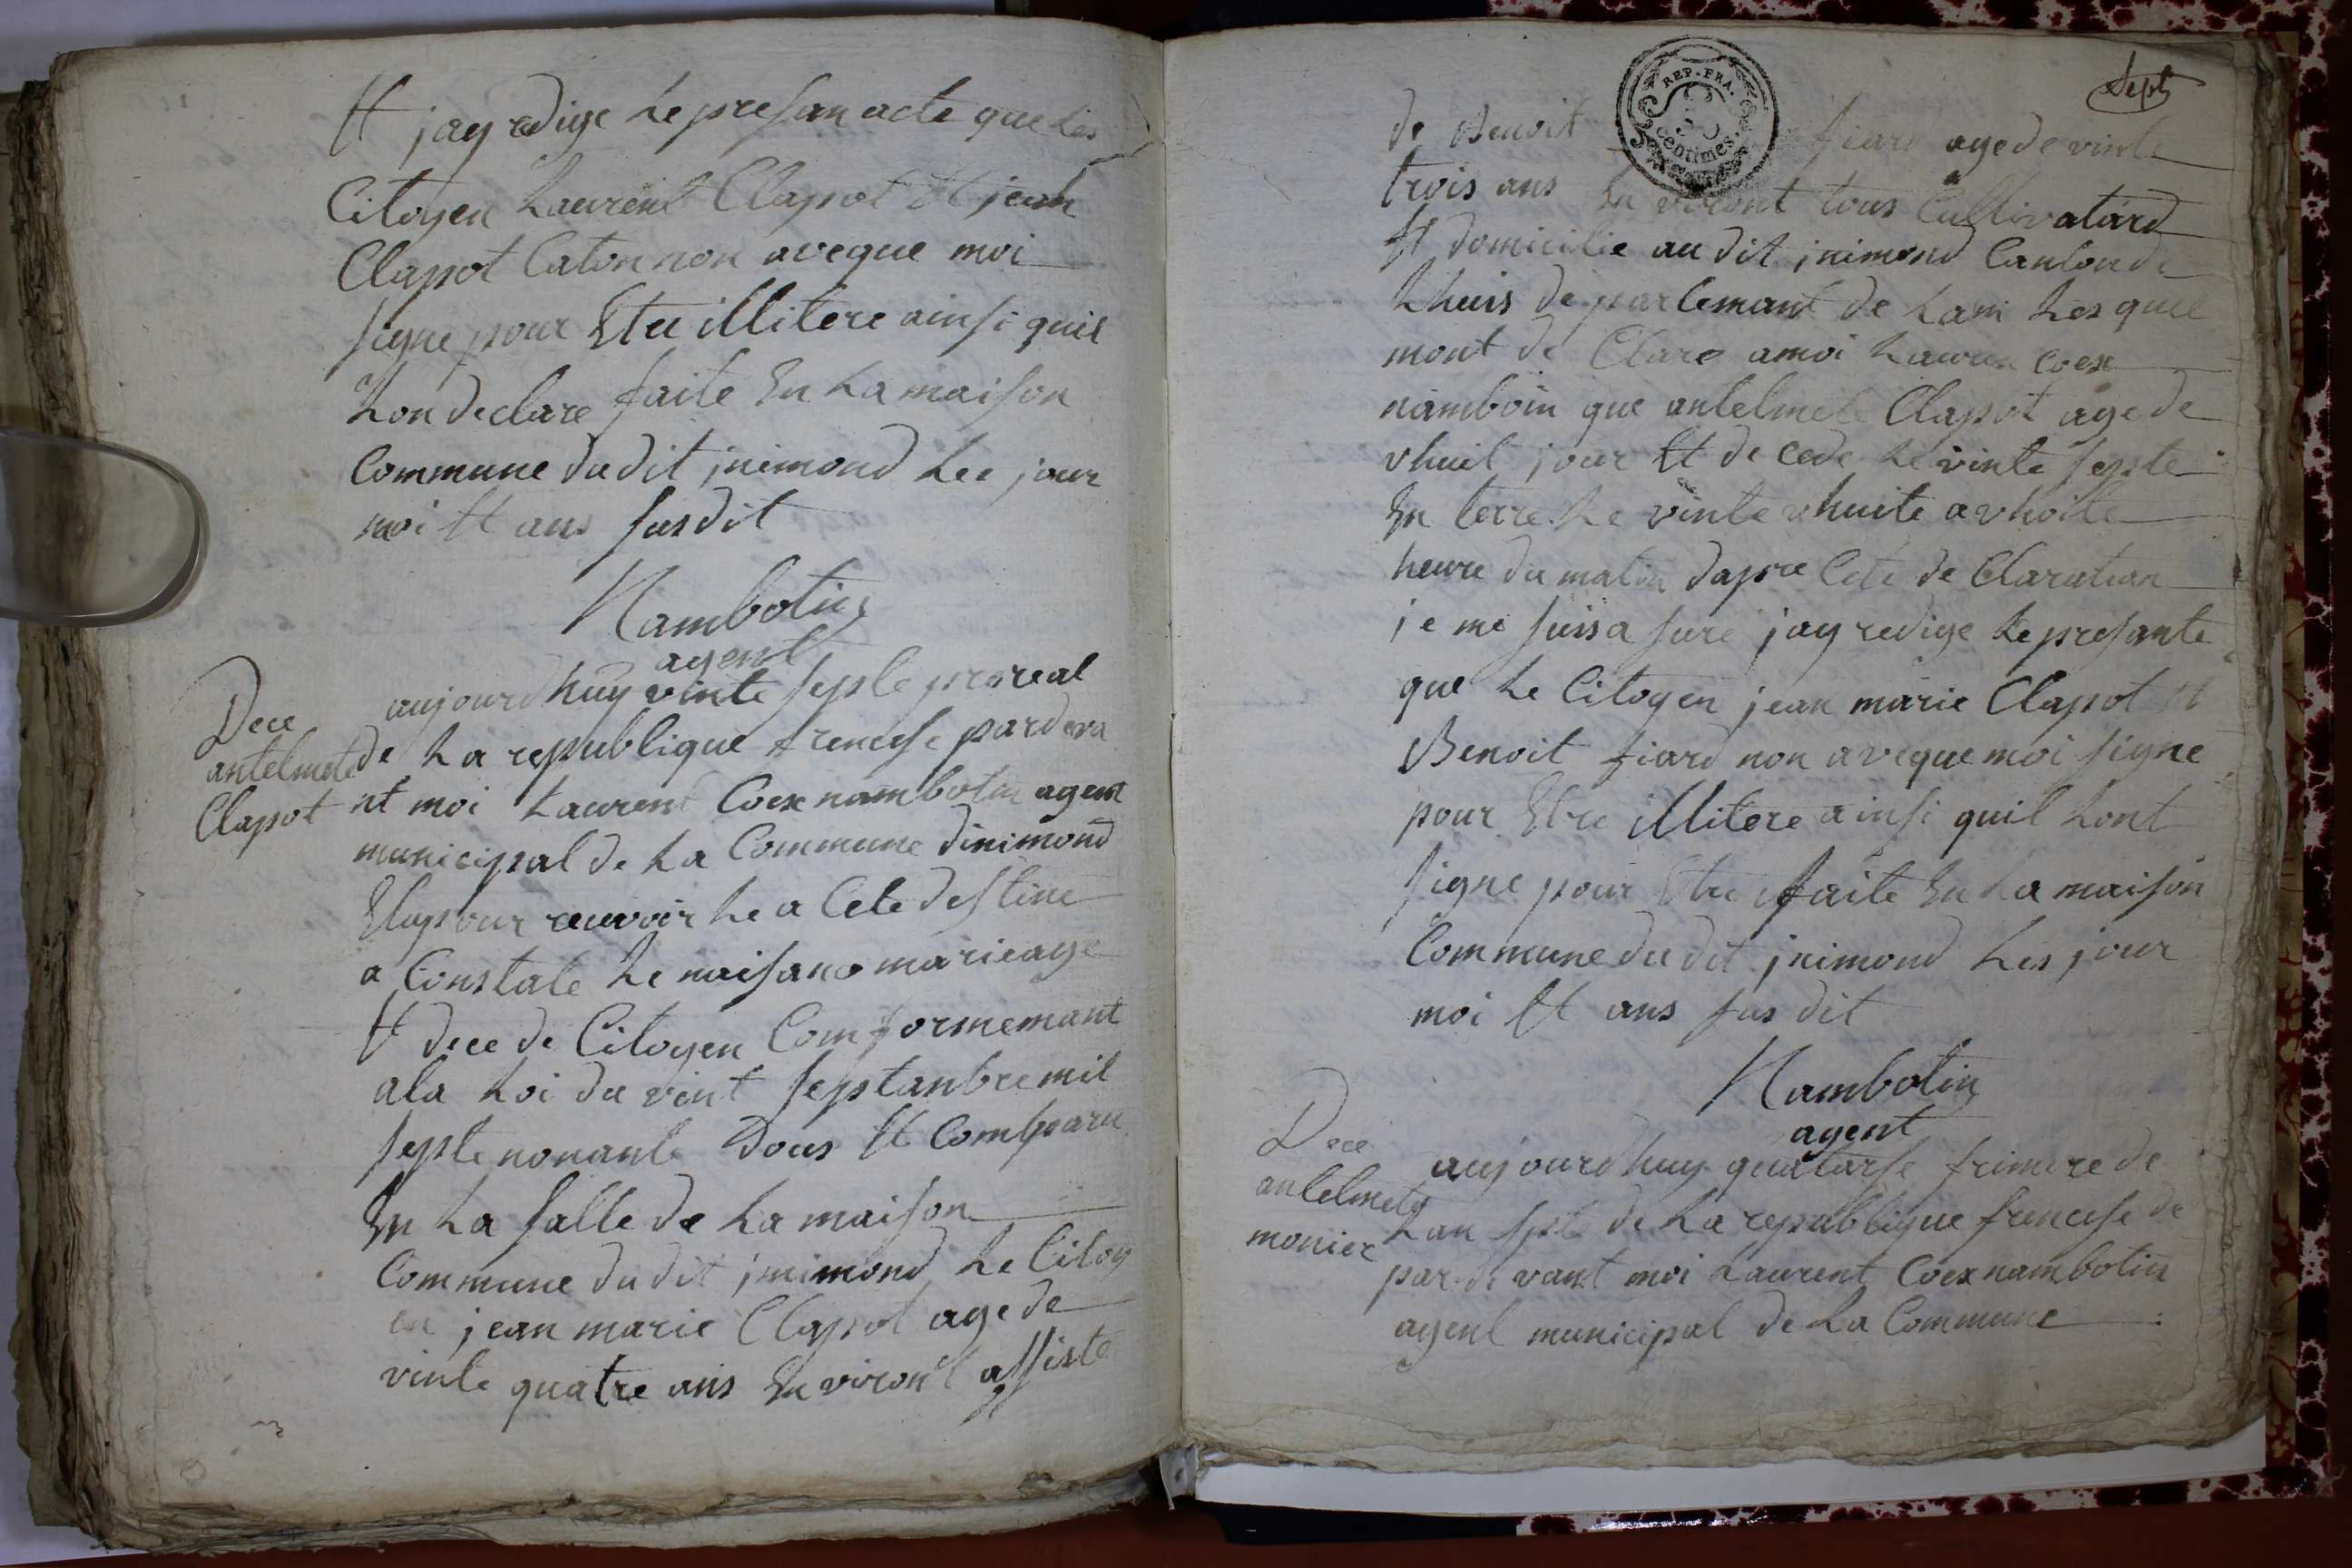 Et jay redige Le presan acte que Les
Citoyen Laurent Clapot Et jean
Clapot Caton non aveque moi
signe pour Etre illitere ainsi quil
Lon declare faite En La maison
Commune du dit jnimond Lee jour
moi Et ans susdit
Nambotin
agent
Dece
antelmete
Clapot
aujourdhuy vinte septe prereal
de La republique frencese pardeva
nt moi Laurent Coex nambotin agent
municipal de La Commune dinimond
Elu pour recuvoir Le a Cete destine
a Constate Le naisance marieage
Et dece de Citoyen Comformemant
ala Loi du vint septanbre mil
septe nonante dous Et Comparu
En La salle de La maison
Commune du dit jnimond Le Citoy
en jean marie Clapot age de
vinte quatre ans Environt assiste
Sept
REP. FRA.
Centimes
de Benoit fiard age de vinte
trois ans En viront tous Cultivatard
Et domicilie au dit jnimond Canton de
Lhuis de parlemant de Lain Les quel
mont de Clare amoi Lauren Coex
namboin que antelmete Clapot age de
vhuit jour Et de cede Le vinte septe
En terre Le vinte vhuite a vhoite
heure du matin dapre Cete de Claration
je me suis a sure jay redige Le presante
que Le Citoyen jean marie Clapot Et
Benoit fiard non aveque moi signe
pour Etre illitere ainsi quil Lont
signe pour Etre faite En La maison
Commune du dit jnimond Les jour
moi Et ans sus dit
Nambotin
agent
Dece
antelmety
monier
aujourdhuy quatarse frimere de
Lan septe de La republique frencese de
par de vant moi Laurent Coex nambotin
agent municipal de La Commune